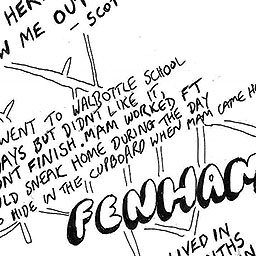 HER
W ME OUT
— SCOT
WENT TO WALBOTTLE SCHOOL
AYS BUT DIDNT LIKE IT,
ONT FINISH. MAM WORKED FT
ULD SNEAK HOME DURING THE DAY
O HIDE IN THE CUPBOARD WHEN MAM CAME HO
FENHAM
LIVED IN
NTHS